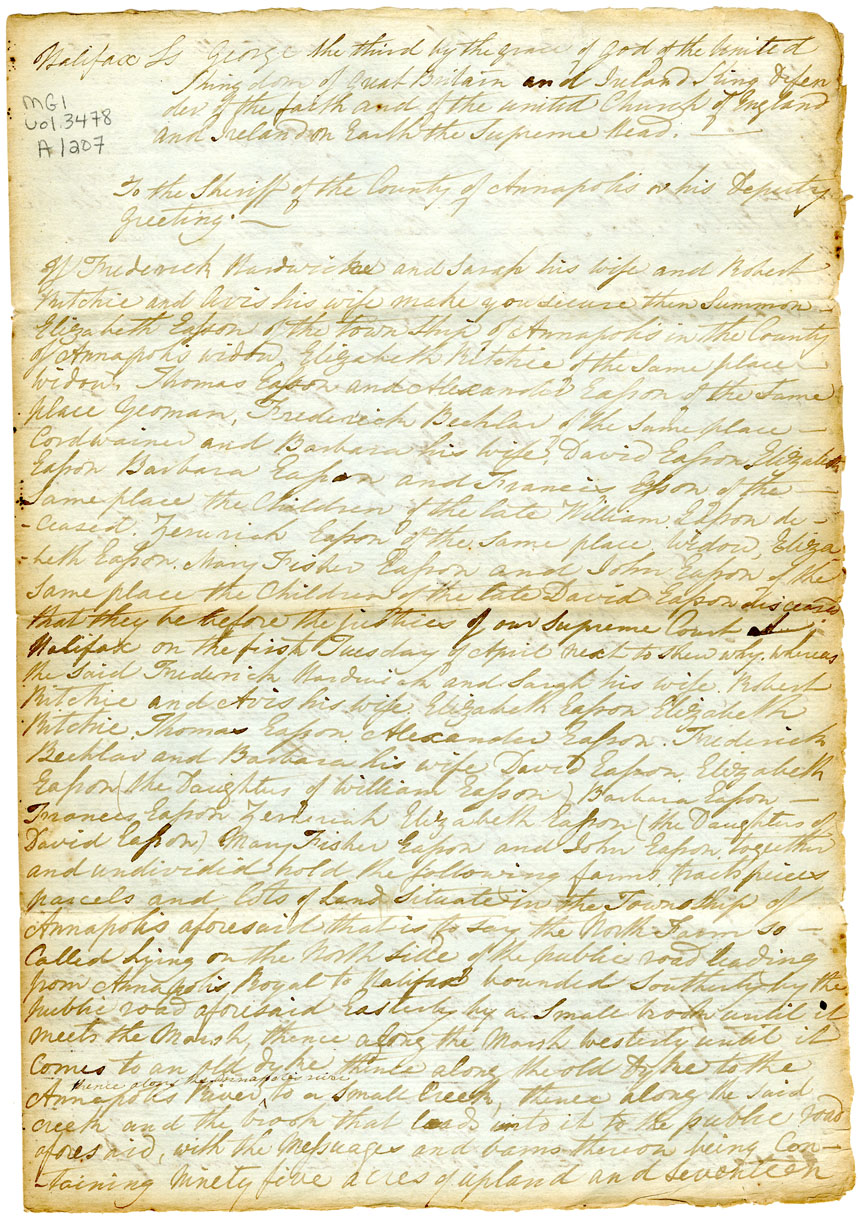 Halifax Ss George the third by the grace of God of the United
Kingdom of Great Britain and Ireland King Defen
der of the faith and of the united Church of England
and Ireland on Earth the Supreme Head. —
MG1
Vol. 3478
A1207
To the Sheriff of the County of Annapolis or his Deputy
Greeting. —
If Frederick Hardwicke and Sarah his wife and Robert
Ritchie and Avis his wife make you secure then Summon
Elizabeth Easson of the town ship of Annapolis in the County
of Annapolis widow Elizabeth Ritchie of the Same place
Widow, Thomas Easson and Alexander Easson of the Same
place Yeoman, Frederick Bechlar of the Same place —
Cordwainer and Barbara his wife, David Easson Elizabeth
Easson Barbara Easson and Frances Esson of the —
Same place the Children of the late William Easson de –
– ceased. Zeruriah Easson of the Same place Widow, Eliza –
– beth Easson. Mary Fisher Easson and John Easson of the
Same place the Children of the late David Easson disceased
that they be before the justices of our Supreme Court at
Halifax on the first Tuesday of April next to shew why. whereas
the said Frederick Hardwick and Sarah his wife. Robert
Ritchie and Avis his wife Elizabeth Easson Elizabeth
Ritchie. Thomas Easson. Alexander Easson. Frederick
Bechlar and Barbara his wife David Easson. Elizabeth
Easson (the Daughter of William Easson) Barbara Easson —
Frances Easson Zeruriah Elizabeth Easson (the Daughter of
David Easson) Mary Fisher Easson and John Easson together
and undivided hold the following farms tracts pieces
parcels and lots of Land Situate in the Township of
Annapolis aforesaid that is to say the North Farm so —
Called Lying on the North side of the public road leading
from Annapolis Royal to Halifax bounded Southerly by the
public road aforesaid Easterly by a Small brook until it
meets the Marsh, thence along the Marsh westerly until it
Comes to an old dyke thence along the old Dyke to the
thence along the Annapolis river
Annapolis River, to a Small Creek, thence along the said
creek and the brook that leads into it to the public road
aforesaid, with the Messuages and barns thereon being Con –
– taining Ninety five acres of upland and Seventeen